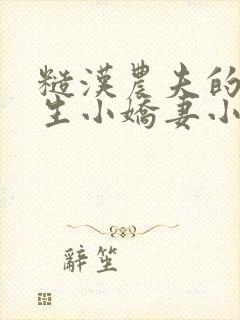 糙漢農夫的
生小嬌妻小
辭笙